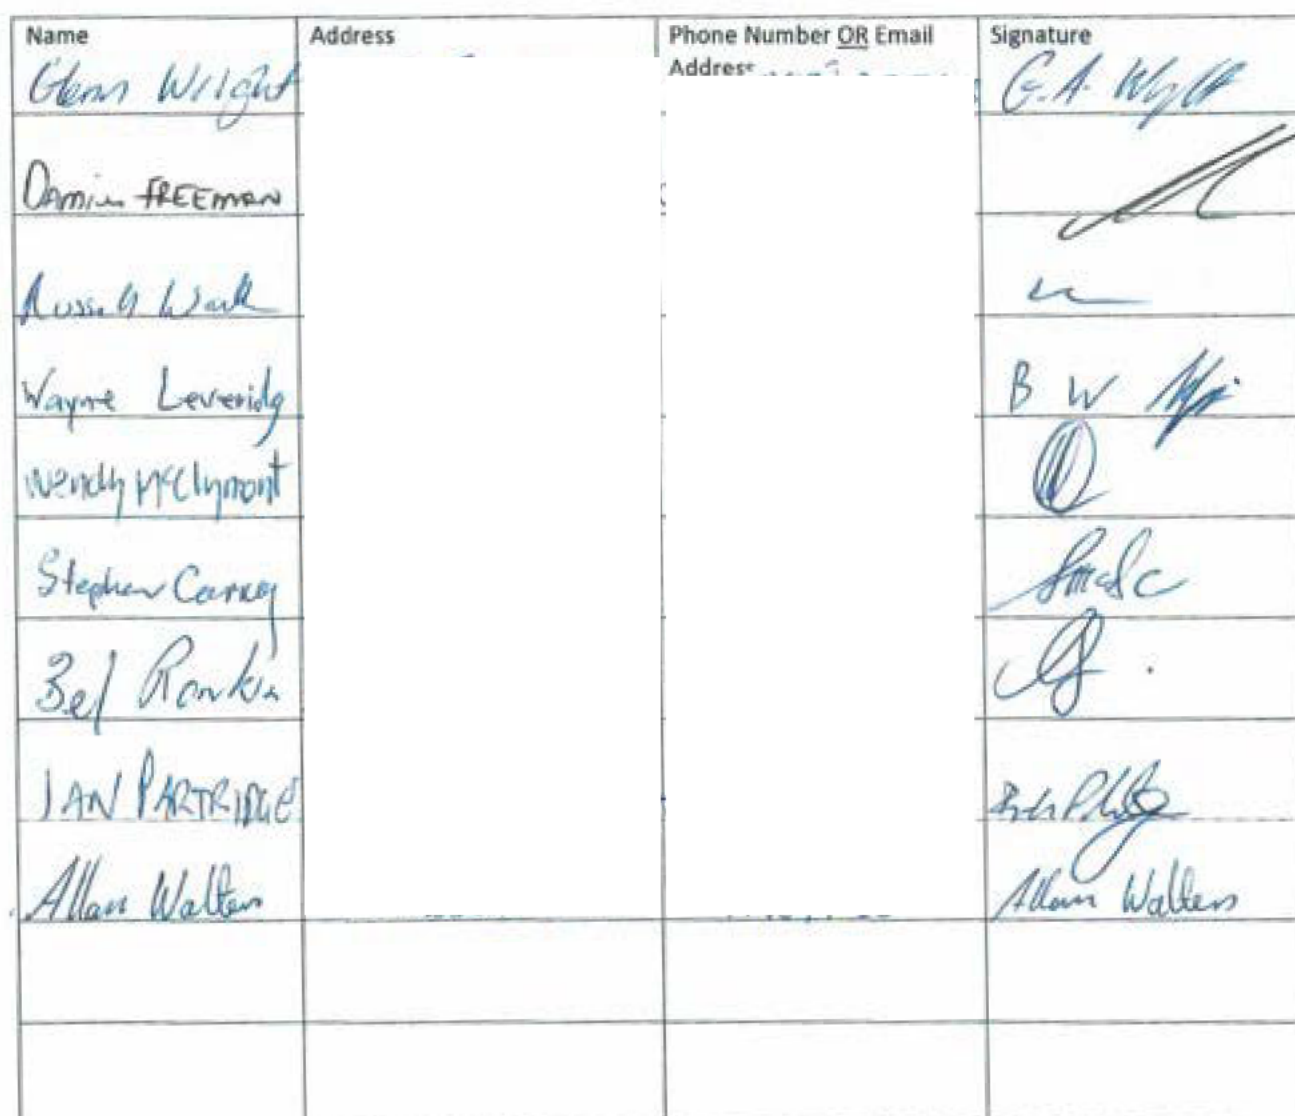 Name Address Phone Number OR Email Signature
Address
Glenn Wright G.A.
Damien FREEMAN
Russell
Wayne Leveridg B W
Wendy McClymont
Stephen Carney
Bel Rankin
IAN PARTRIDGE
Allan Walters Allan Walters